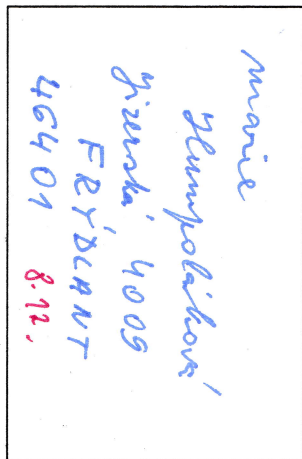 Marie
Humpoláková
Jizerská 4009
FRÝDLANT
46401 8.12.